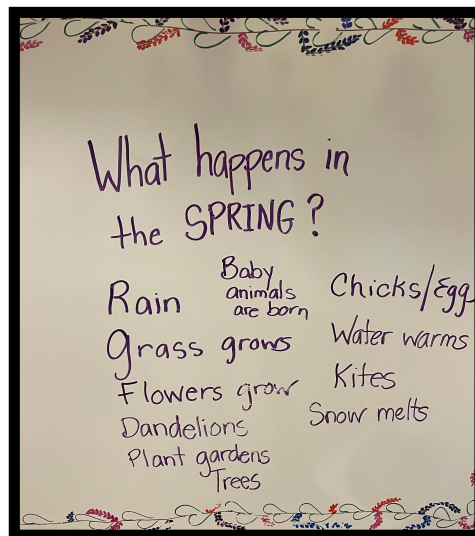 What happens in
the SPRING?
Rain
Grass grows
Flowers grow
Dandelions
Plant gardens
Trees
Baby
animals
are born
Chicks/Egg
Water warms
Kites
Snow melts